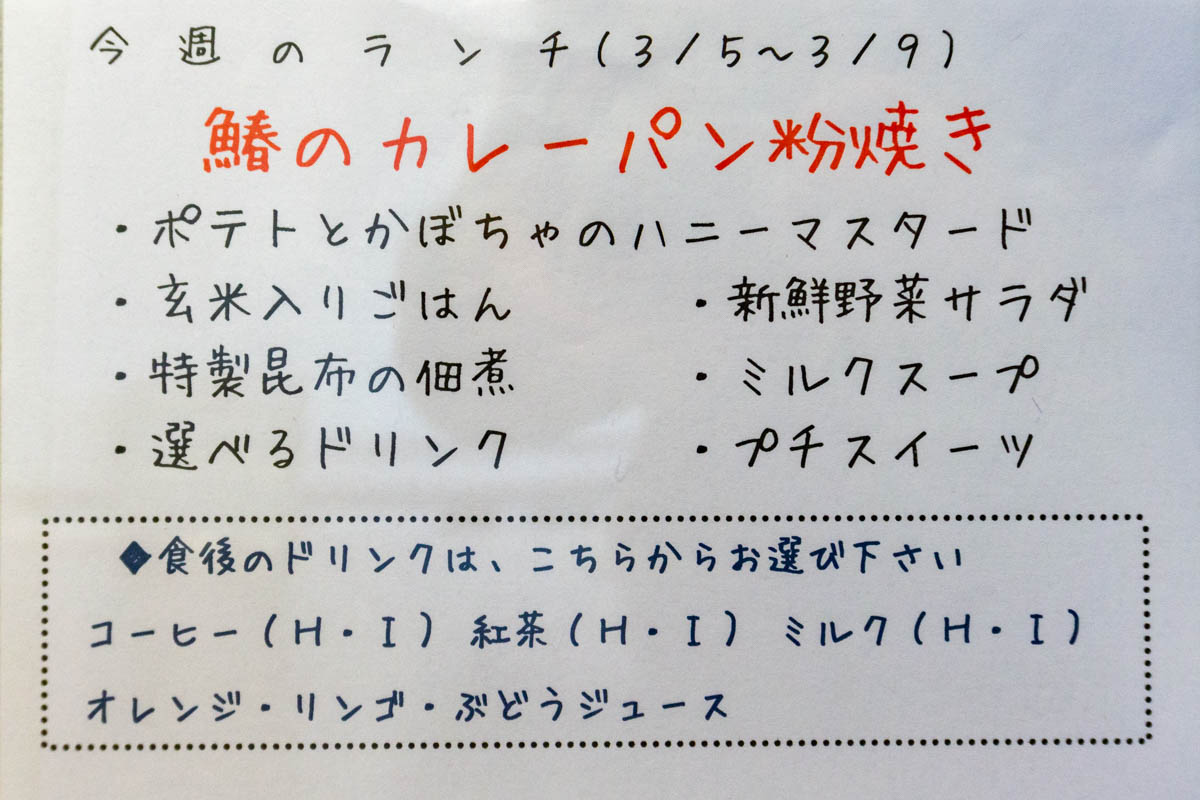 今週のランチ(3/5～3/9)
鰆のカレーパン粉焼き
・ポテトとかぼちゃのハニーマスタード
・玄米入りごはん ・新鮮野菜サラダ
・特製昆布の佃煮 ・ミルクスープ
・選べるドリンク ・プチスイーツ
◆食後のドリンクは、こちらからお選び下さい
コーヒー(H・I) 紅茶(H・I) ミルク(H・I)
オレンジ・リンゴ・ぶどうジュース